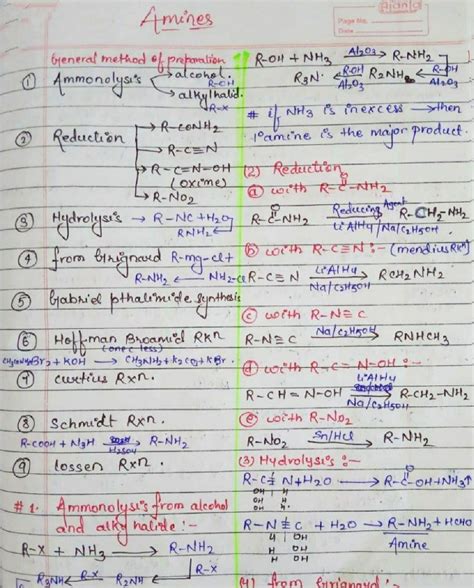 Amines
Page No.
Date
General method of preparation
① Ammonolysis → alcohol. R-OH
→ alkylhalid. R-X
② Reduction → R-CONH2
→ R-C≡N
→ R-C=N-OH
(oxime)
→ R-NO2
③ Hydrolysis → R-NC + H2O
RNH2 ←
④ from Grignard R-mg-cl +
R-NH2 ← NH2-cl
⑤ Gabriel pthalimide synthesis
⑥ Hoffman Broamid RXn
(one c less)
+ KOH → CH3NH2 + K2CO3 + KBr.
⑦ curtius RXn.
⑧ Schmidt RXn.
R-COOH + N3H → R-NH2
H2SO4
⑨ lossen RXn.
#1. Ammonolysis from alcohol
and alkyl halide :-
R-X + NH3 → R-NH2
↓ R-X
R3NH ← R-X R2NH
R-OH + NH3 Al2O3 → R-NH2
R3N. ← R-OH Al2O3 R2NH ← R-OH Al2O3
# if NH3 is in excess → then
1° amine is the major product.
(2) Reduction
ⓐ with R-C-NH2
O
R-C-NH2 Reducing Agent → R-CH2-NH2
O LiAlH4 / Na/C2H5OH
ⓑ with R-C≡N :- (mendius RXn)
R-C≡N LiAlH4 → RCH2NH2
Na/C2H5OH
ⓒ with R-N≡C
R-N≡C Na/C2H5OH → RNHCH3
ⓓ with R-C=N-OH :-
LiAlH4
R-CH=N-OH → R-CH2-NH2
Na/C2H5OH
ⓔ with R-NO2
R-NO2 Sn/HCl → R-NH2
(3) Hydrolysis :-
R-C≡N + H2O → R-C-OH + NH3↑
O
OH H
OH H
OH H
R-N≡C + H2O → R-NH2 + HCHO
H OH Amine
H OH
(4) from Grignard :-